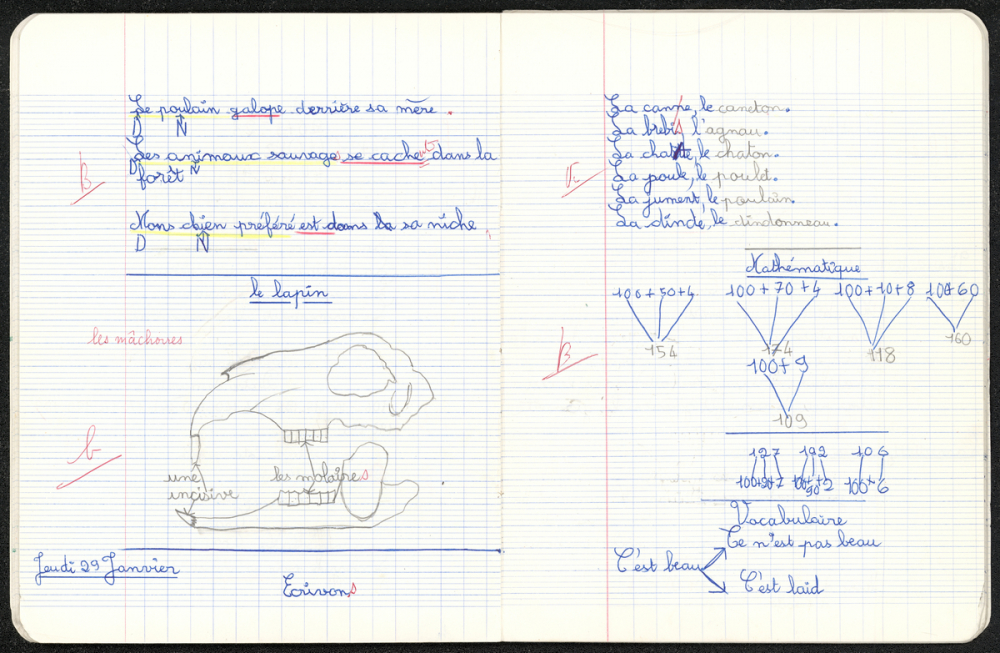 Le poulain galope derrière sa mère.
D N
Les animaux sauvages se cachent dans la
D N
forêt
B
Mons chien préféré est dans la sa niche.
D N
le lapin
les mâchoires
b
une
incisive
les molaires
Jeudi 29 Janvier
Ecrivons
La canne, le caneton.
La brebis l'agnau.
La chatte, le chaton.
La poule, le poulet.
La jument, le poulain.
La dinde, le dindonneau.
Mathématique
100+50+4 100+70+4 100+10+8 100+60
154 174 118 160
100+9
B
109
127 192 106
100+20+7 100+90+2 100+6
Vocabulaire
Ce n'est pas beau
C'est beau
C'est laid